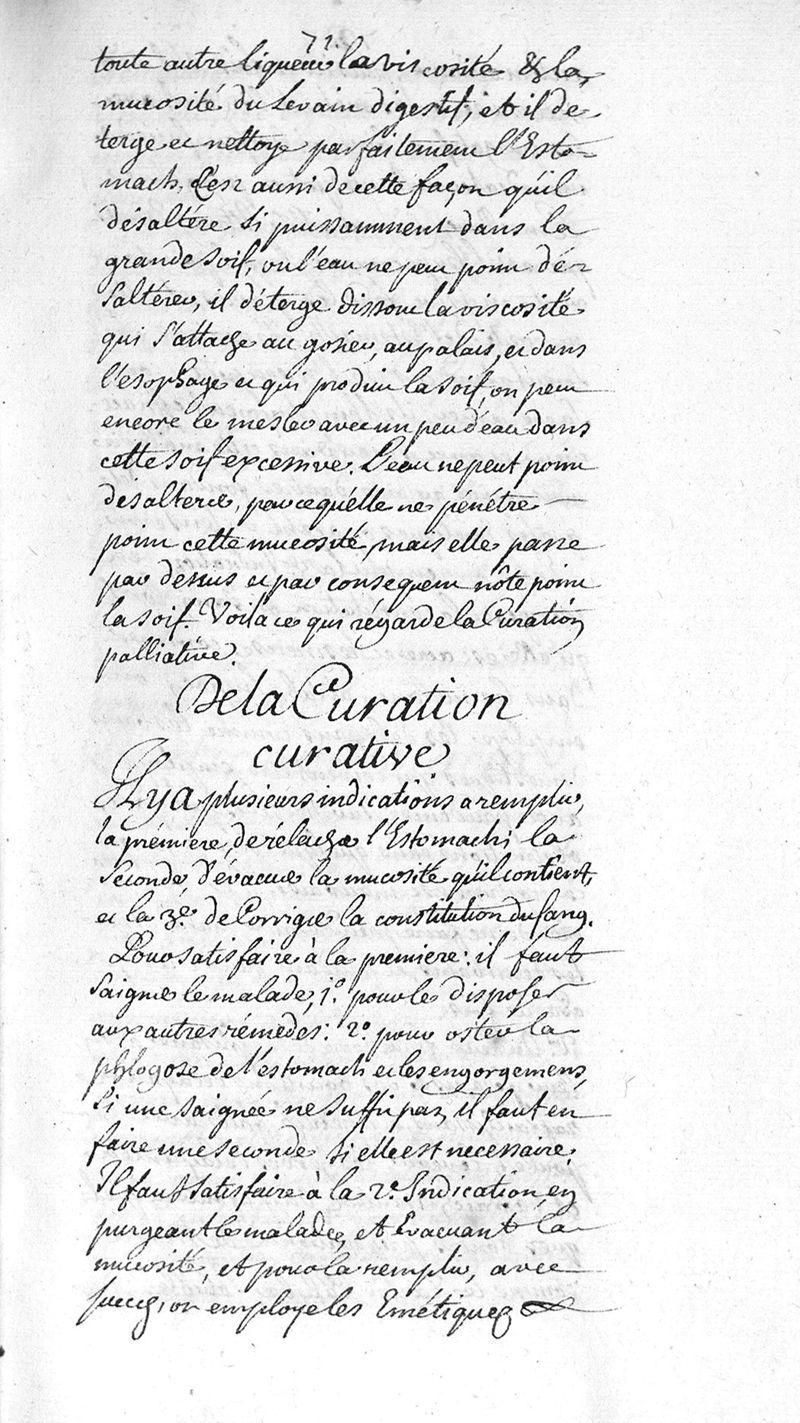 71.
toute autre liqueur la viscosité & la
mucosité du Levain digestif, et il de
terge et nettoye parfaitement l'Esto-
mach, C'est aussi de cette façon qu'il
désaltére si puissamment dans la
grande soif, ou l'eau ne peut point dé-
saltérer, il déterge dissout la viscosité
qui s'attache au gosier, au palais, et dans
l'esophage et qui produit la soif, on peut
encore le mesler avec un peu d'eau dans
cette soif excessive. L'eau ne peut point
desalterer, parce qu'élle ne pénétre
point cette mucosité, mais elle passe
par dessus et par consequent n'ôte point
la soif. Voila ce qui régarde la Curation
palliative.
De la Curation
curative
Il y a plusieurs indications a remplir,
la prémiere, de rélacher l'Estomach; la
seconde, d'évacuer la mucosité qu'il contient,
et la 3e. de Corriger la constitution du sang.
Pour satisfaire à la premiere: il faut
saigner le malade, 1o. pour le disposer
aux autres rémedes: 2o. pour oster la
phlogose de l'éstomach et les engorgemens,
si une saignée ne suffit pas, il faut en
faire une seconde si elle est necessaire.
Il faut satisfaire à la 2e. Indication, en
purgeant le malade, et Evacuant la
mucosité, et pour la remplir, avec
succez, on employe les Emétiques